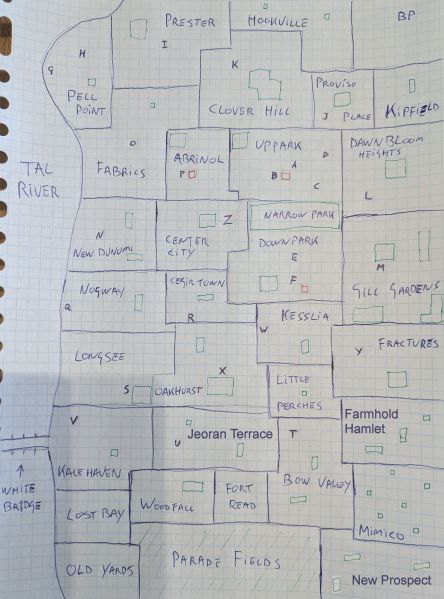 PRESTER
HOOKVILLE
BP
H
I
G
K
PELL
POINT
CLOVER HILL
PROVISO
J PLACE
KIPFIELD
O
FABRICS
ABRINOL
P
UPPARK
A
D
B
C
DAWNBLOOM
HEIGHTS
L
TAL
RIVER
N
NEW DUNUMI
Z
CENTER
CITY
NARROW PARK
DOWNPARK
E
F
M
GILL GARDENS
NOGWAY
Q
CEGIRTOWN
R
KESSLIA
W
LONGSEE
S
OAKHURST
X
Y
FRACTURES
LITTLE
PERCHES
V
KALEHAVEN
Jeoran Terrace
U
T
Farmhold
Hamlet
WHITE
BRIDGE
LOST BAY
WOODFALL
FORT
READ
BOW VALLEY
MIMICO
OLD YARDS
PARADE FIELDS
New Prospect